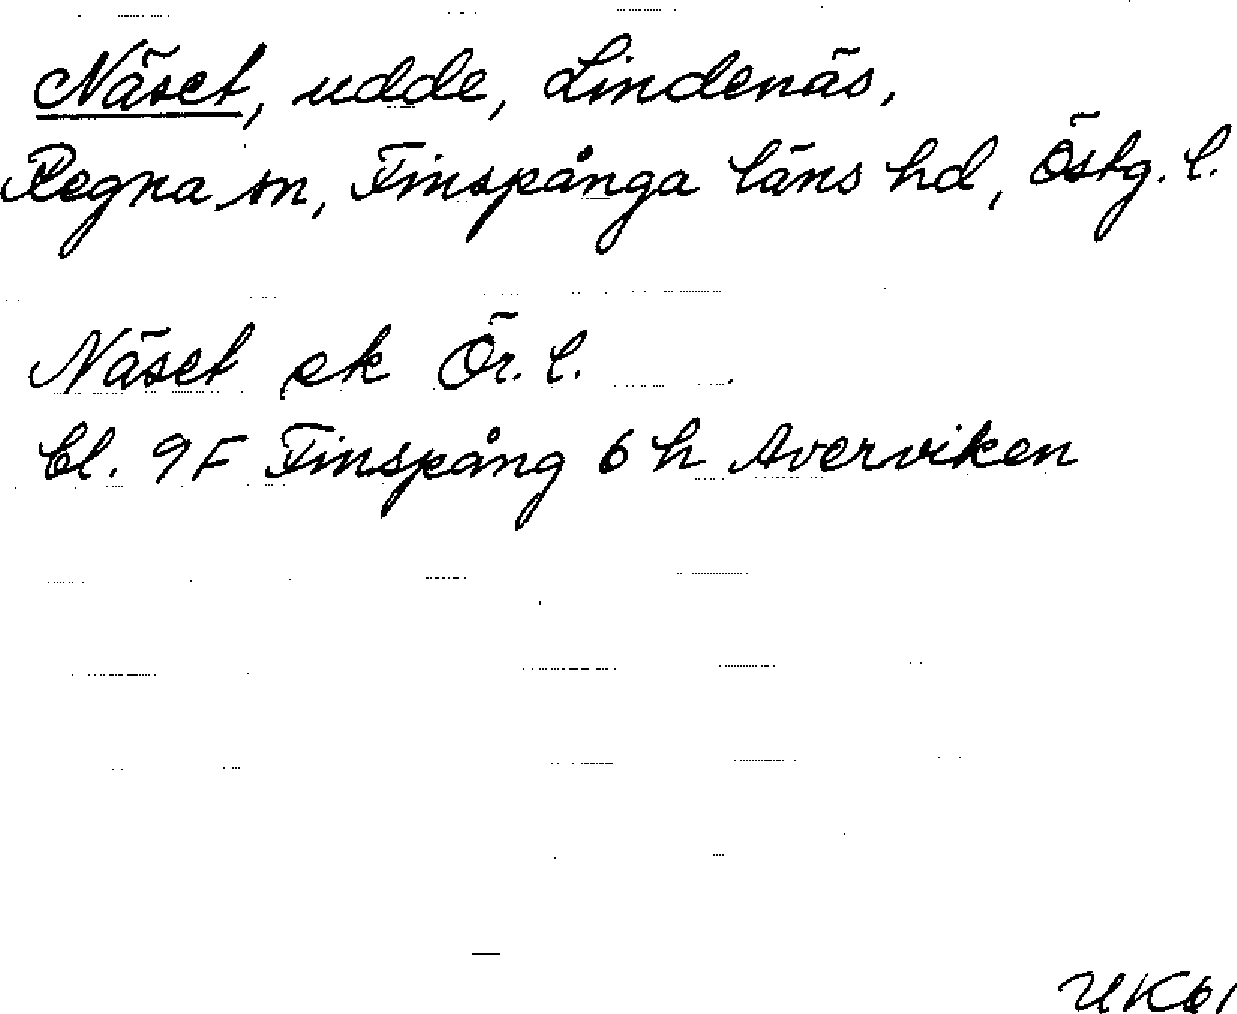 Näset, udde, Lindenäs,
Regna sn, Finspånga läns hd, Östg. l.
Näset ek Ör. l.
bl. 9F Finspång 6 h Averviken
UK61